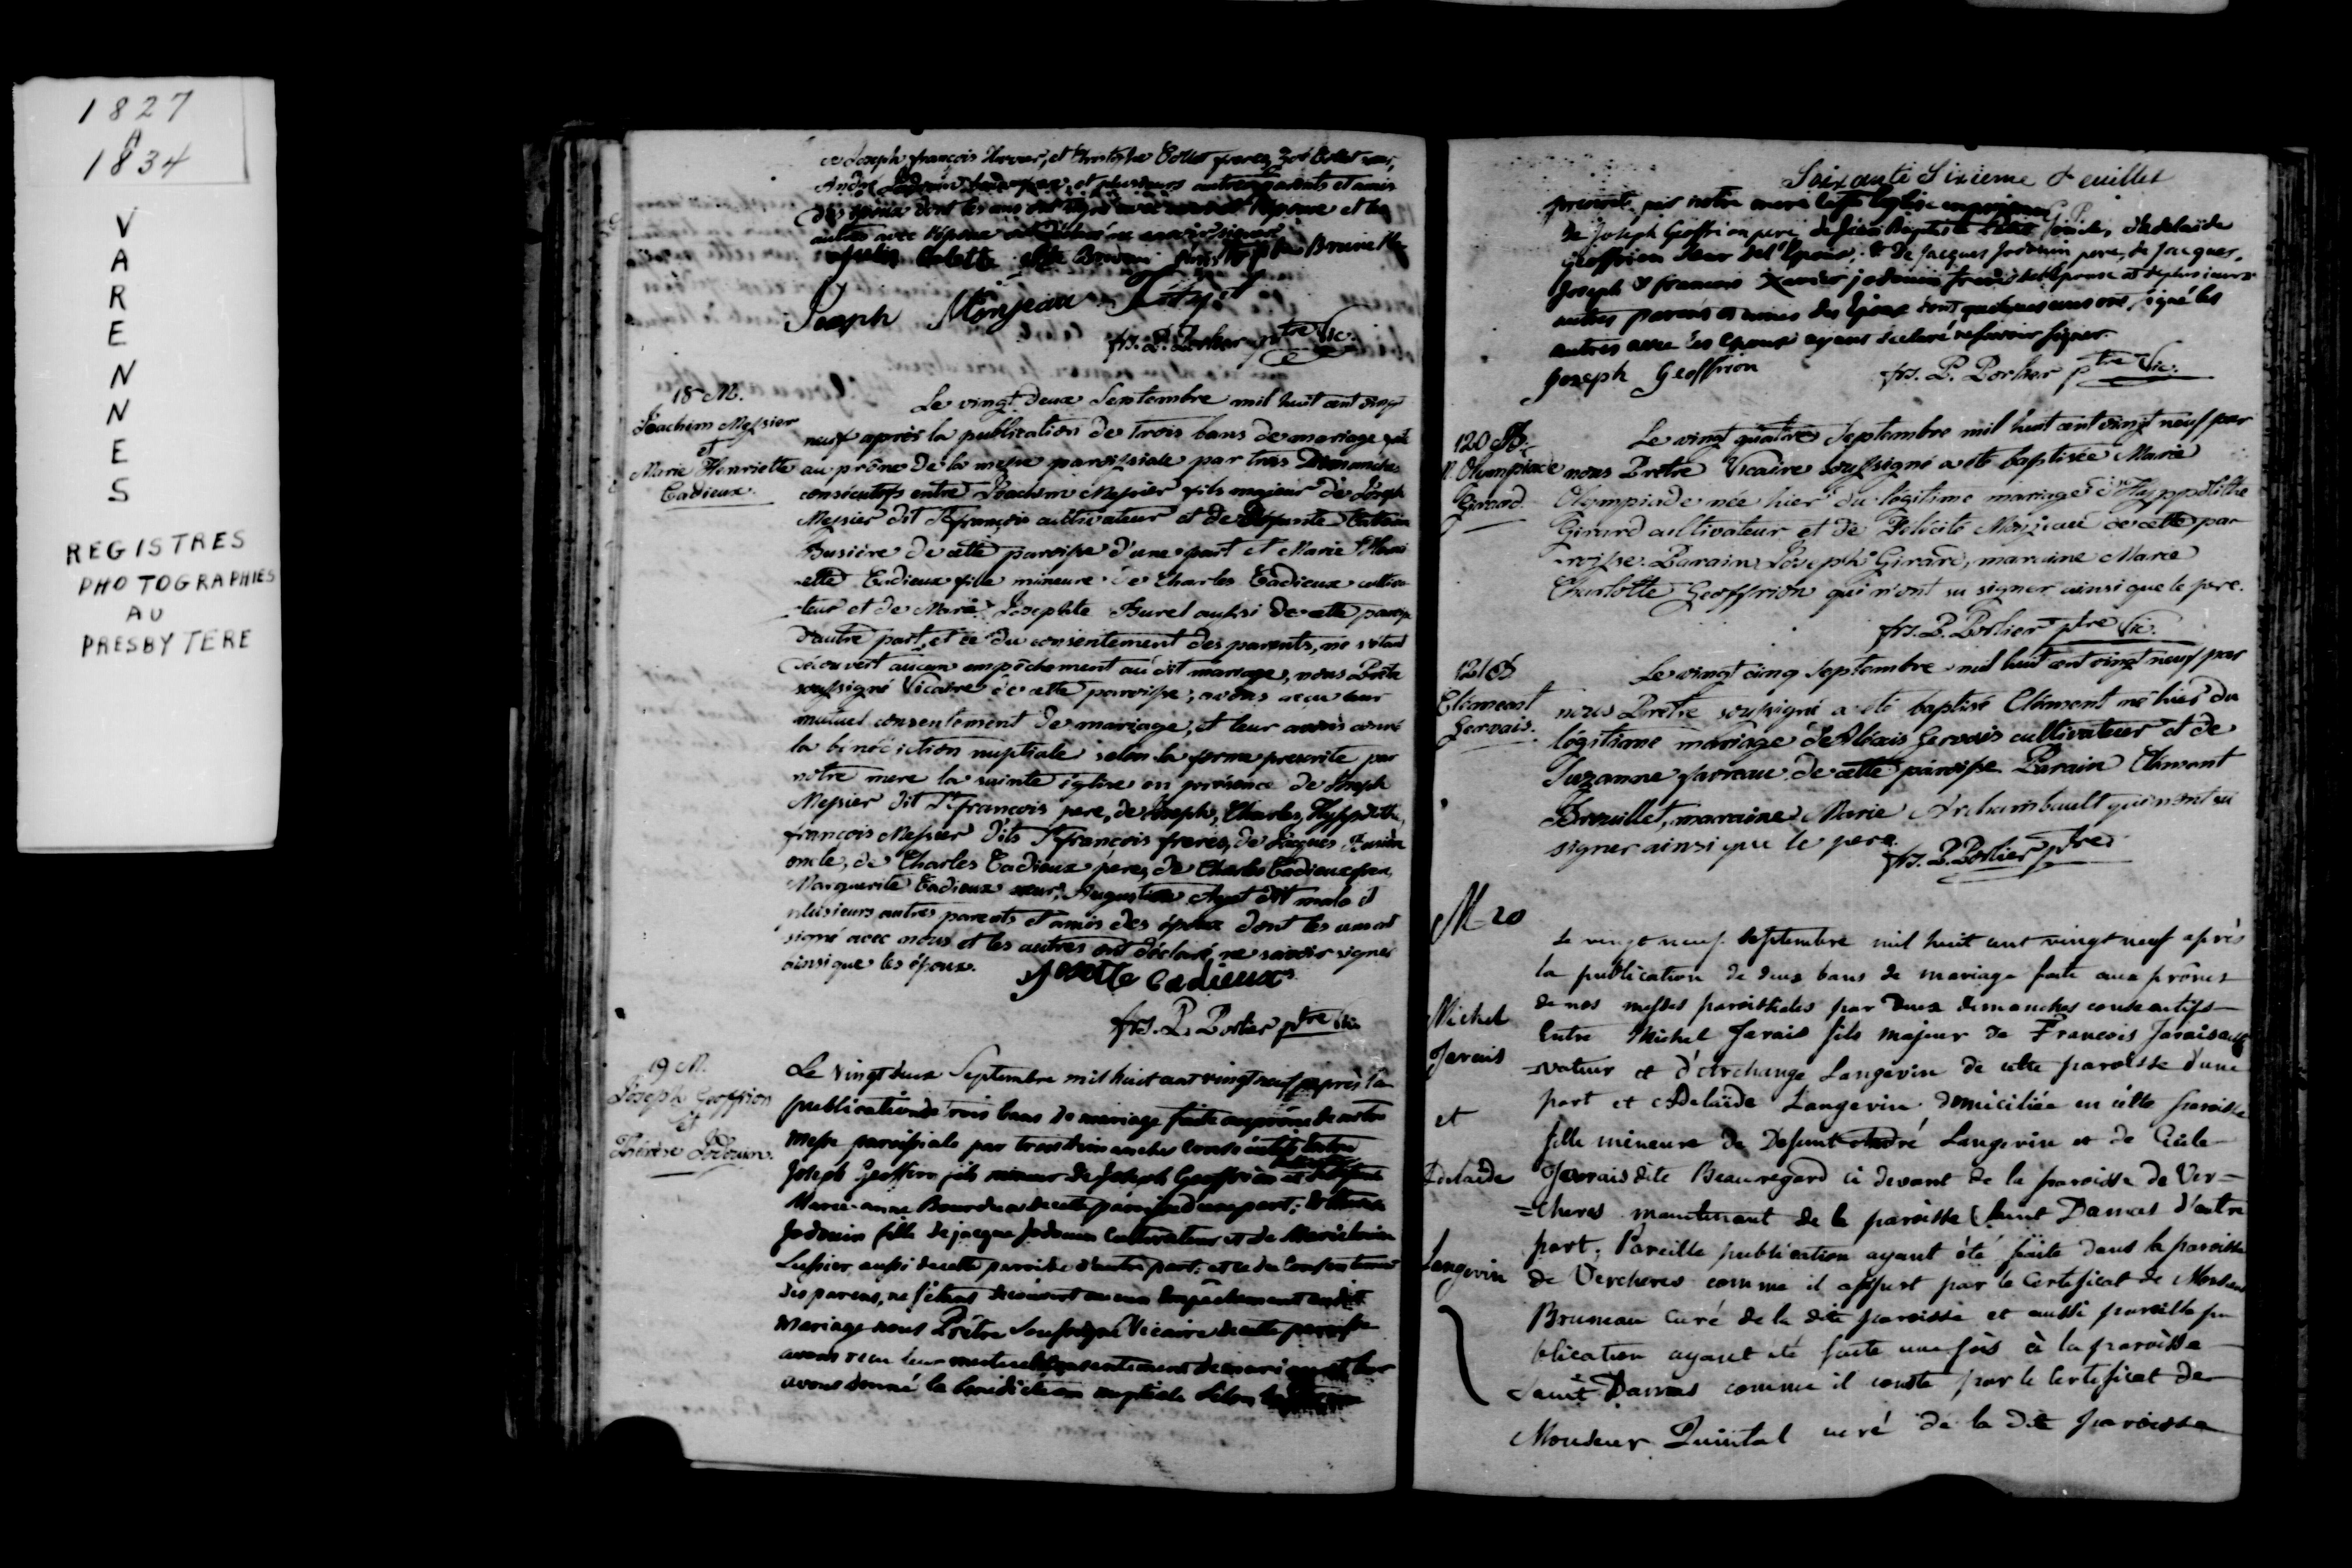 1827
A
1834
V
A
R
E
N
N
E
S
REGISTRES
PHOTOGRAPHIES
AU
PRESBYTERE
de Joseph françois et Christophe
André et plusieurs autres parents et amis
des époux dont les uns ont signé avec et les
autres avec l'épouse ont déclaré ne savoir signer
Brunelle
Joseph Monjeau
frs. P. Porlier ptre Vic.
18 M.
Joachim Messier
et
Marie Henriette
Cadieux.
Le vingt deux Septembre mil huit cent vingt
neuf après la publication de trois bans de mariage faite
au prône de la messe paroissiale par trois Dimanches
consécutifs entre Joachim Messier fils majeur de Joseph
Messier dit St françois cultivateur et de Défunte
Busière de cette paroisse d'une part et Marie Henri
-ette Cadieux fille mineure de Charles Cadieux cultiva
-teur et de Marie Josephte Burel aussi de cette paroisse
d'autre part, et ce du consentement des parents, ne s'étant
découvert aucun empêchement au dit mariage, nous Prêtre
soussigné Vicaire de cette paroisse, avons reçu leur
mutuel consentement de mariage, et leur avons donné
la bénédiction nuptiale selon la forme prescrite par
notre mere la sainte église en présence de Joseph
Messier dit St françois pere, de Joseph, Charles, Hyppolithe,
françois Messier dits St françois freres, de Jacques Busière
oncle, de Charles Cadieux pere, de Charles Cadieux frere,
Marguerite Cadieux sœur, Augustin Ayet dit malo et
plusieurs autres parents et amis des époux dont les uns ont
signé avec nous et les autres ont déclaré ne savoir signer
ainsi que les époux. Josette Cadieux
frs. P. Porlier ptre Vic.
19 M.
Joseph Geoffrion
et
Thérèse Jodouin.
Le vingt deux Septembre mil huit cent vingt neuf après la
publication de trois bans de mariage faite au prône de notre
Messe paroissiale par trois dimanches consécutifs entre
Joseph Geoffrion fils mineur de Joseph Geoffrion et
Marie-anne Bourdua de cette paroisse d'une part; &
Jodouin fille de jacque Jodouin Cultivateur et de Marie
Lussier aussi de cette paroisse d'autre part; et ce du Consentement
des parens, ne s'étant découvert aucun Empêchement au dit
Mariage nous Prêtre Soussigné Vicaire de cette paroisse
avons recu leur mutuel Consentement de mariage et leur
avons donné la bénédiction nuptiale Selon
Soixante Sixieme feuillet
prescrite par notre mere la Ste Eglise en présence
de Joseph Geoffrion pere, de Jean Baptiste oncle, d'adelaïde
Geoffrion Sœur de l'Epoux, & de Jacques Jodouin pere, de Jacques,
Joseph & francois Xavier jodouin freres de l'Epouse et de plusieurs
autres parens et amis des Epoux dont quelques uns ont signé les
autres avec les epoux ayant déclaré ne savoir signer.
Joseph Geoffrion frs. P. Porlier ptre Vic.
120 B.
M. Olympiade
Girard
Le vingt quatre Septembre mil huit cent vingt neuf par
nous Prêtre Vicaire soussigné a été baptisée Marie
Olympiade née hier du légitime mariage d'Hyppolithe
Girard cultivateur et de Félicité Monjeau de cette pa-
-roisse. Parain Joseph Girard, maraine Marie
Charlotte Geoffrion qui n'ont su signer ainsi que le pere.
frs. P. Porlier ptre Vic.
121 B
Clément
Gervais.
Le vingt cinq Septembre mil huit cent vingt neuf par
nous Prêtre soussigné a été baptisé Clément né hier du
légitime mariage d'Alexis Gervais cultivateur et de
Suzanne favreau de cette paroisse Parain Clément
Brouillet, maraine Marie Archambault qui n'ont su
signer ainsi que le pere.
frs. P. Porlier ptre
M 20
Michel
Jarais
et
Adelaïde
Langevin
Le vingt neuf Septembre mil huit cent vingt neuf après
la publication de deux bans de mariage faite aux prônes
de nos messes paroissiales par deux dimanches consécutifs
Entre Michel Jarais fils majeur de Francois Jarais culti
-vateur et d'Archange Langevin de cette paroisse d'une
part et Adelaïde Langevin domiciliée en cette paroisse
fille mineure de Defunt André Langevin et de
Jarais dite Beauregard ci devant de la paroisse de Ver=
=cheres maintenant de la paroisse Saint Damas d'autre
part; Pareille publication ayant été faite dans la paroisse
de Vercheres comme il appert par le Certificat de Monsieur
Bruneau Curé de la dite paroisse et aussi pareille pu
blication ayant été faite une fois à la paroisse
Saint Damas comme il conste par le Certificat de
Monsieur Quintal curé de la dite paroisse